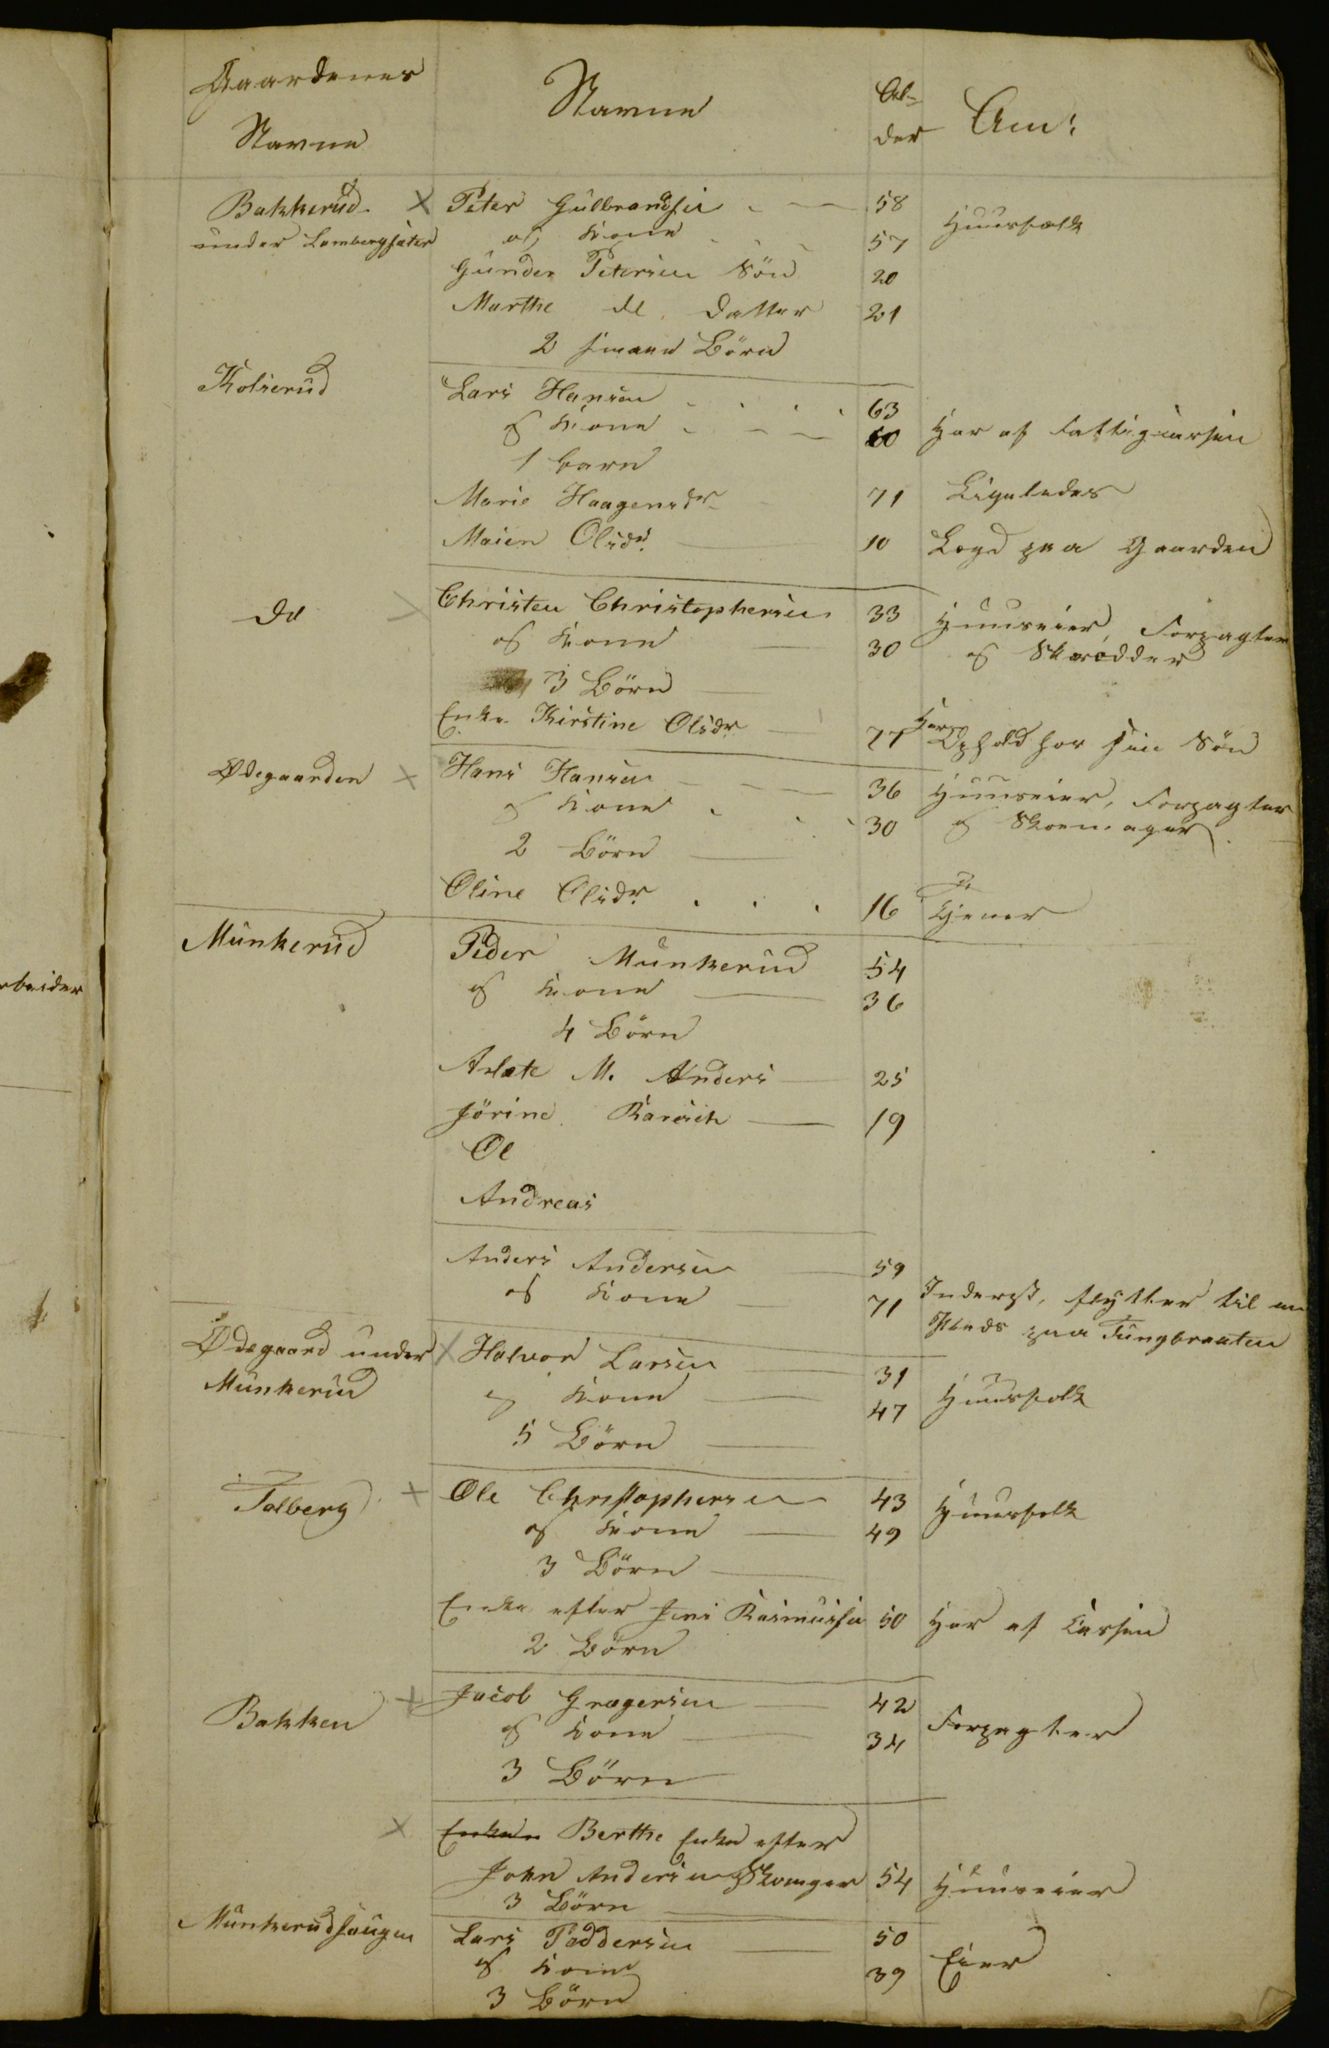 Gaardenes Navne
Navne
Al-
der
Anm:
Bakkerud × Peter Gulbrandsen 58 Huusfolk
under Lambergsæter og Kone 57
Gunder Petersen Søn 20
Marthe do Datter 21
2 smaae Børn
Kolserud Lars Hansen 63
og Kone 60 Har af Fattigcassen
1 barn
Marie Haagensdr 71 Ligeledes
Maren Olsdr 10 Lægd paa Gaarden
do × Christen Christophersen 33 Huuseier, Forpagter
og Kone 30 og Skrædder
3 Børn
Enke Kirstine Olsdr 77 Har Ophold hos sin Søn
Ødegaarden × Hans Hansen 36 Huuseier, Forpagter
og Kone 30 og Skoemager
2 Børn
Oline Olsdr 16 Tjener
Munkerud Peder Munkerud 54
og Kone 36
4 Børn
M. Anders 25
Jörine 19
Ol
Andreas
Anders Andersen 59
og Kone 71 Inderst, flytter til en
Plads paa Tungbraaten
Ødegaard under × Halvor Larsen 31
Munkerud og Kone 47 Huusfolk
5 Børn
Tolberg × Ole Christophersen 43 Huusfolk
og Kone 49
3 Børn
Enke efter Jens Rasmussen 50 Har af Cassen
2 Børn
Bakken × Jacob Grægersen 42 Forpagter
og Kone 34
3 Børn
× Enken Berthe Enke efter
John Andersen 54 Huuseier
3 Børn
Munkerudhaugen Lars Pedersen 50
og Kone 39 Eier
3 Børn
rbeider